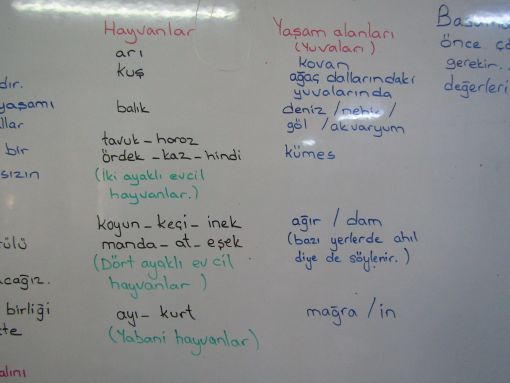 Hayvanlar
arı
kuş
balık
tavuk - horoz
ördek - kaz - hindi
(İki ayaklı evcil
hayvanlar.)
koyun - keçi - inek
manda - at - eşek
(Dört ayaklı evcil
hayvanlar)
ayı - kurt
(Yabani hayvanlar)
Yaşam alanları
(Yuvaları)
kovan
ağaç dallarındaki
yuvalarında
deniz / nehir /
göl / akvaryum
kümes
ağır / dam
(bazı yerlerde ahıl
diye de söylenir.)
mağra / in
önce
gerekir.
değerleri
dır.
yaşamı
llar
bir
sızın
rülü
acağız.
birliği
kte
alını